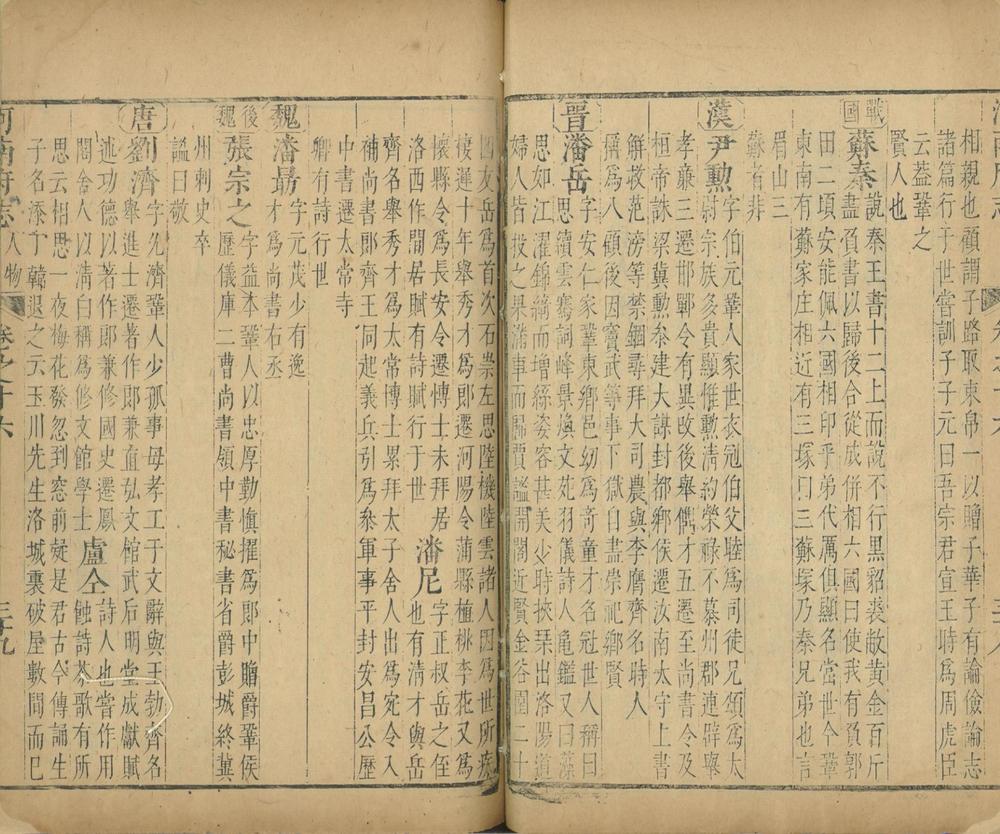 相親也顧謂子路取束帛一以贈子華子有論儉論志
諸篇行于世嘗訓子子元曰吾宗君宜王時爲周虎臣
云葢鞏之
賢人也
戰國 蘇秦 說秦王書十二上而說不行黑貂裘敝黄金百斤
盡負書以歸後合從成併相六國曰使我有負郭
田二頃安能佩六國相印乎弟代厲俱顯名當世今鞏
東南有蘇家庄相近有三塚冂三蘇塚乃秦兄弟也言
眉山三
蘇者非
漢 尹勲 字伯元鞏人家世衣冠伯父睦爲司徒兄頌爲太
尉宗族多貴顯惟勲清約榮祿不慕州郡連辟舉
孝亷三遷邯鄲令有異政後舉儁才五遷至尚書令及
桓帝誅梁冀勲叅建大謀封都鄉侯遷汝南太守上書
解救范滂等禁錮尋拜大司農與李膺齊名時人
稱爲八顧後因竇武等事下獄自盡崇祀鄉賢
晋 潘岳 字安仁家鞏東鄉邑幼爲竒童才名冠世人稱曰
思贖雲騫詞峰景煥文苑羽儀詩人龜鑑又曰藻
思如江濯錦綺而增絲姿容甚美少時挾琹出洛陽道
婦人皆投之果滿車而歸賈謐開閣近賢金谷園二十
四友岳爲首次石崇左思陸機陸雲諸人因爲世所疾
棲遲十年舉秀才爲郎遷河陽令蒲縣植桃李花又爲
懷縣令爲長安令遷博士未拜居 潘尼 字正叔岳之侄
洛西作閒居賦有詩賦行于世 也有清才與岳
齊名舉秀才爲太常博士累拜太子舍人出爲宛令入
補尚書郎齊王冏起義兵引爲叅軍事平封安昌公歷
中書遷太常寺
卿有詩行世
魏 潘勗 字元茂少有逸
才爲尚書右丞
後魏 張宗之 字益本鞏人以忠厚勤慎擢爲郎中贈爵鞏侯
歷儀庫二曹尚書領中書秘書省爵彭城終冀
州刺史卒
謚曰敬
唐 劉濟 字允濟鞏人少孤事母孝工于文辭與王勃齊名
舉進士遷著作郎兼直弘文館武后明堂成獻賦
述功德以著作郎兼修國史遷鳳 盧仝 詩人也嘗作用
閣舍人以清白稱爲修文館學士 蝕詩茶歌有所
思云相思一夜梅花發忽到窓前疑是君古今傳誦生
子名添丁韓退之云玉川先生洛城裏破屋數間而巳
河南府志 人物 卷之十六 三十九